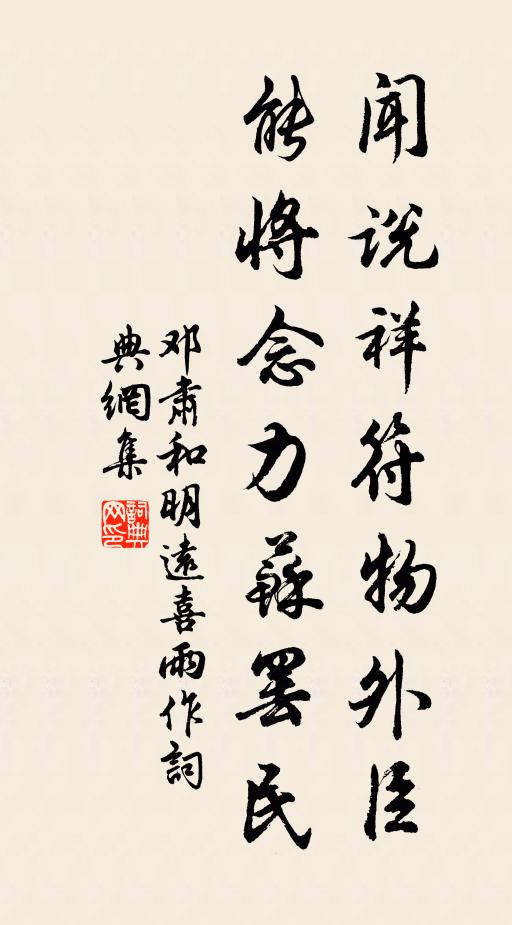 闻说祥符物外臣
能将念力蘇罢民
邓肃和明遠喜雨作詞
典網集
詞典网印